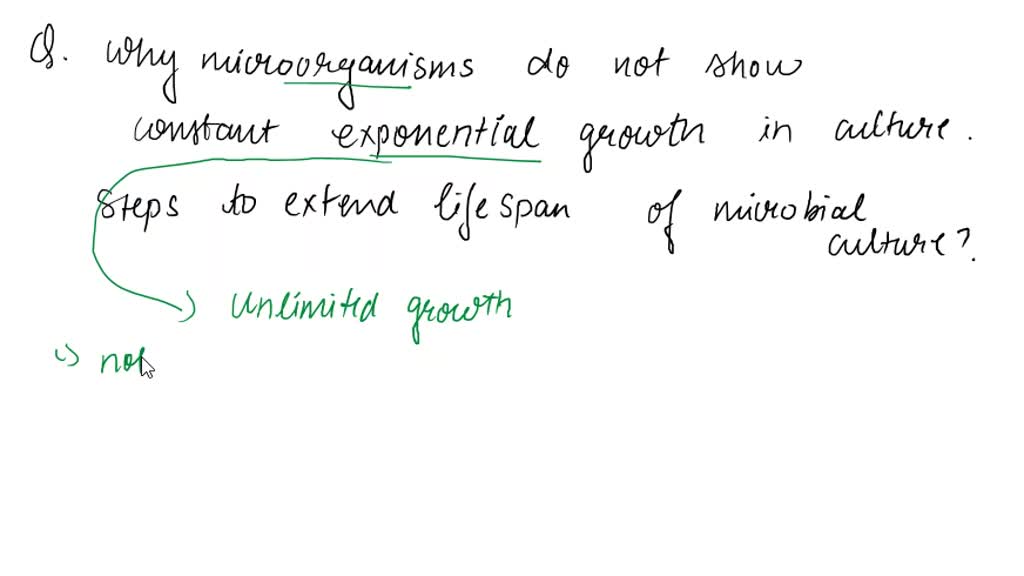 Q. Why microorganisms do not show
constant exponential growth in culture.
Steps to extend life span of microbial
culture?
unlimited growth
not